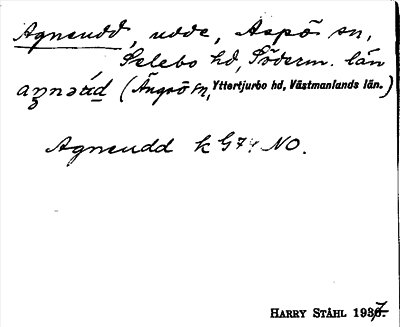 Agneudd, udde, Aspö sn,
Selebo hd, Söderm. län
(Ängsö sn, Yttertjurbo hd, Västmanlands län.)
Agneudd k G74 NO.
HARRY STÅHL 1937.